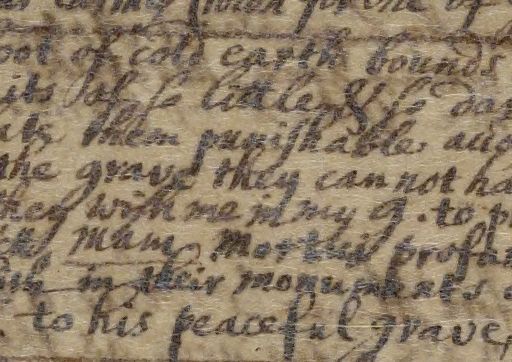 for one of
oot of cold earth bounds
its false little & so dar
them punishable
the grave they cannot ha
they wish me in my g. to p
mam. Mortui profan
in their monuments
. to his peaceful grave,